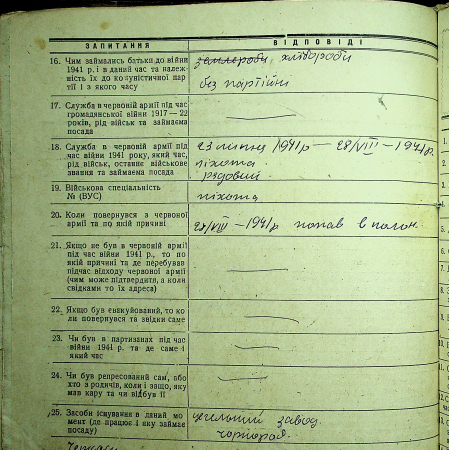 ЗАПИТАННЯ
ВІДПОВІДІ
16. Чим займались батьки до війни
1941 р. і в даний час та належ-
ність їх до комуністичної пар-
тії і з якого часу
землероби, хлібороби
без партійни
17. Служба в червоній армії під час
громадянської війни 1917—22
років, рід військ та займаєма
посада
18. Служба в червоній армії під
час війни 1941 року, який час,
рід військ, останнє військове
звання та займаєма посада
1941 р — 28/VIII — 1941 р.
піхота
рядовий
19. Військова спеціальність
№ (ВУС)
піхота
20. Коли повернувся з червоної
армії та по якій причині
28/VIII — 1941 р попав в полон.
21. Якщо не був в червоній армії
під час війни 1941 р., то по
якій причині та де перебував
під час відходу червоної армії
(чим може підтвердити, а коли
свідками то їх адреса)
22. Якщо був евакуйований, то ко-
ли повернувся та звідки саме
23. Чи був в партизанах під час
війни 1941 р. та де саме і
який час
24. Чи був репресований сам, або
хто з родичів, коли і защо, яку
мав кару та чи відбув її
25. Засоби існування в даний мо-
мент (де працює і яку займає
посаду)
цегельний завод